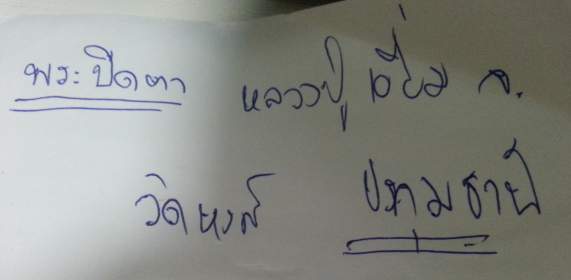 พระปิดตา หลวงปู่ เอี่ยม จ.
วัดหงส์ ปทุมธานี